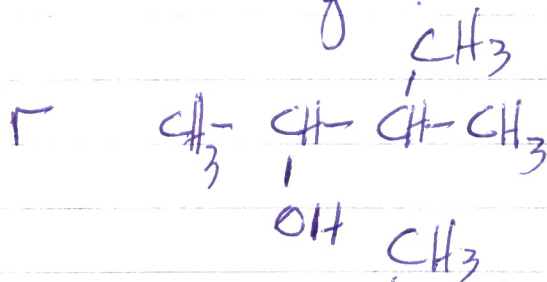 CH3
CH3- CH- CH-CH3
OH
CH3